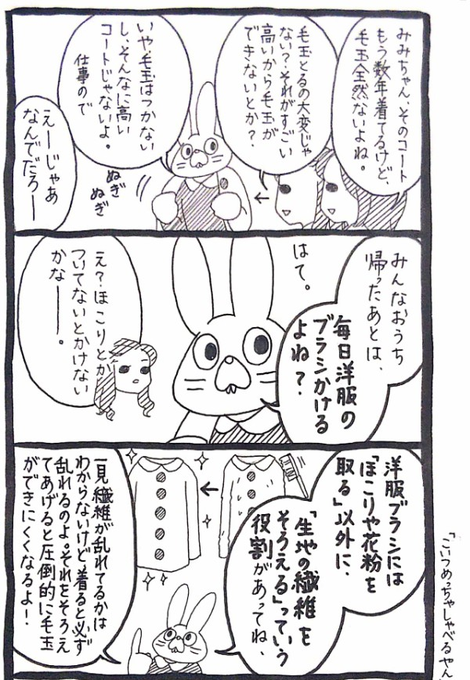 みみちゃん、そのコート
もう数年着てるけど、
毛玉全然ないよね。
毛玉とるの大変じゃ
ない?それがすごい
高いから毛玉が
できないとか?
いや毛玉はつかない
し、そんなに高い
コートじゃないよ。
仕事ので
ぬぎ
ぬぎ
えーじゃあ
なんでだろー
みんなおうち
帰ったあとは、
はて。
毎日洋服の
ブラシかける
よね?
え?ほこりとか
ついてないとかけない
かなー。
洋服ブラシには
「ほこりや花粉を
取る」以外に、
「生地の繊維を
そろえる」っていう
役割があってね、
一見繊維が乱れてるかは
わからないけど着ると必ず
乱れるのよ。それをそろえ
てあげると圧倒的に毛玉
ができにくくなるよ!
「こいつめっちゃしゃべるやん」